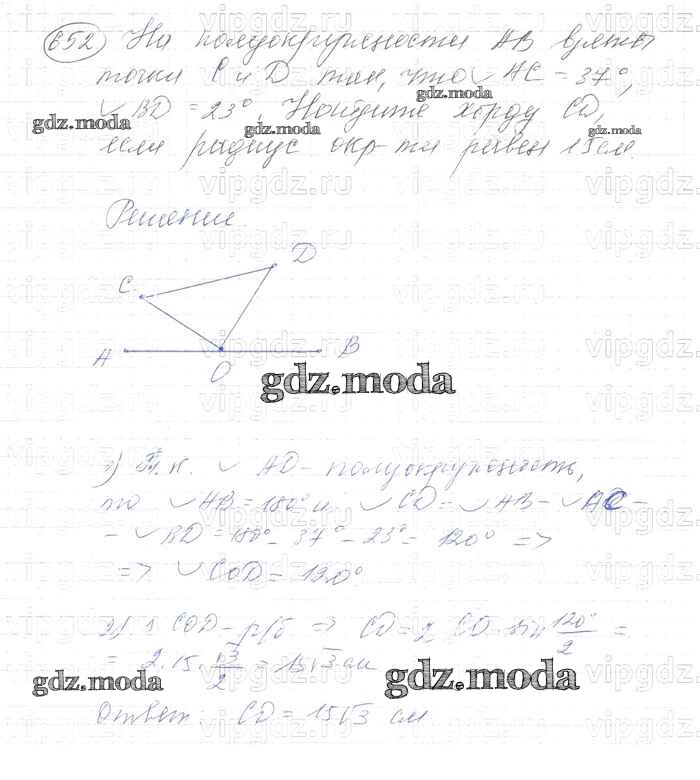 652 На полуокружности AB взяты
точки C и D так, что ◡AC = 37°,
◡BD = 23°. Найдите хорду CD,
если радиус окр-ти равен 15 см.
gdz.moda
gdz.moda
gdz.moda
gdz.moda
Решение
C
D
A
O
B
gdz.moda
1) Т.к. ◡AD - полуокружность,
то ◡AB = 180° и ◡CD = ◡AB - ◡AC -
- ◡BD = 180° - 37° - 23° = 120° =>
=> ◡COD = 120°
2) COD - р/б => CD = 2 CO · sin 120°/2 =
= 2 · 15 · √3/2 = 15√3 см
gdz.moda
gdz.moda
Ответ: CD = 15√3 см